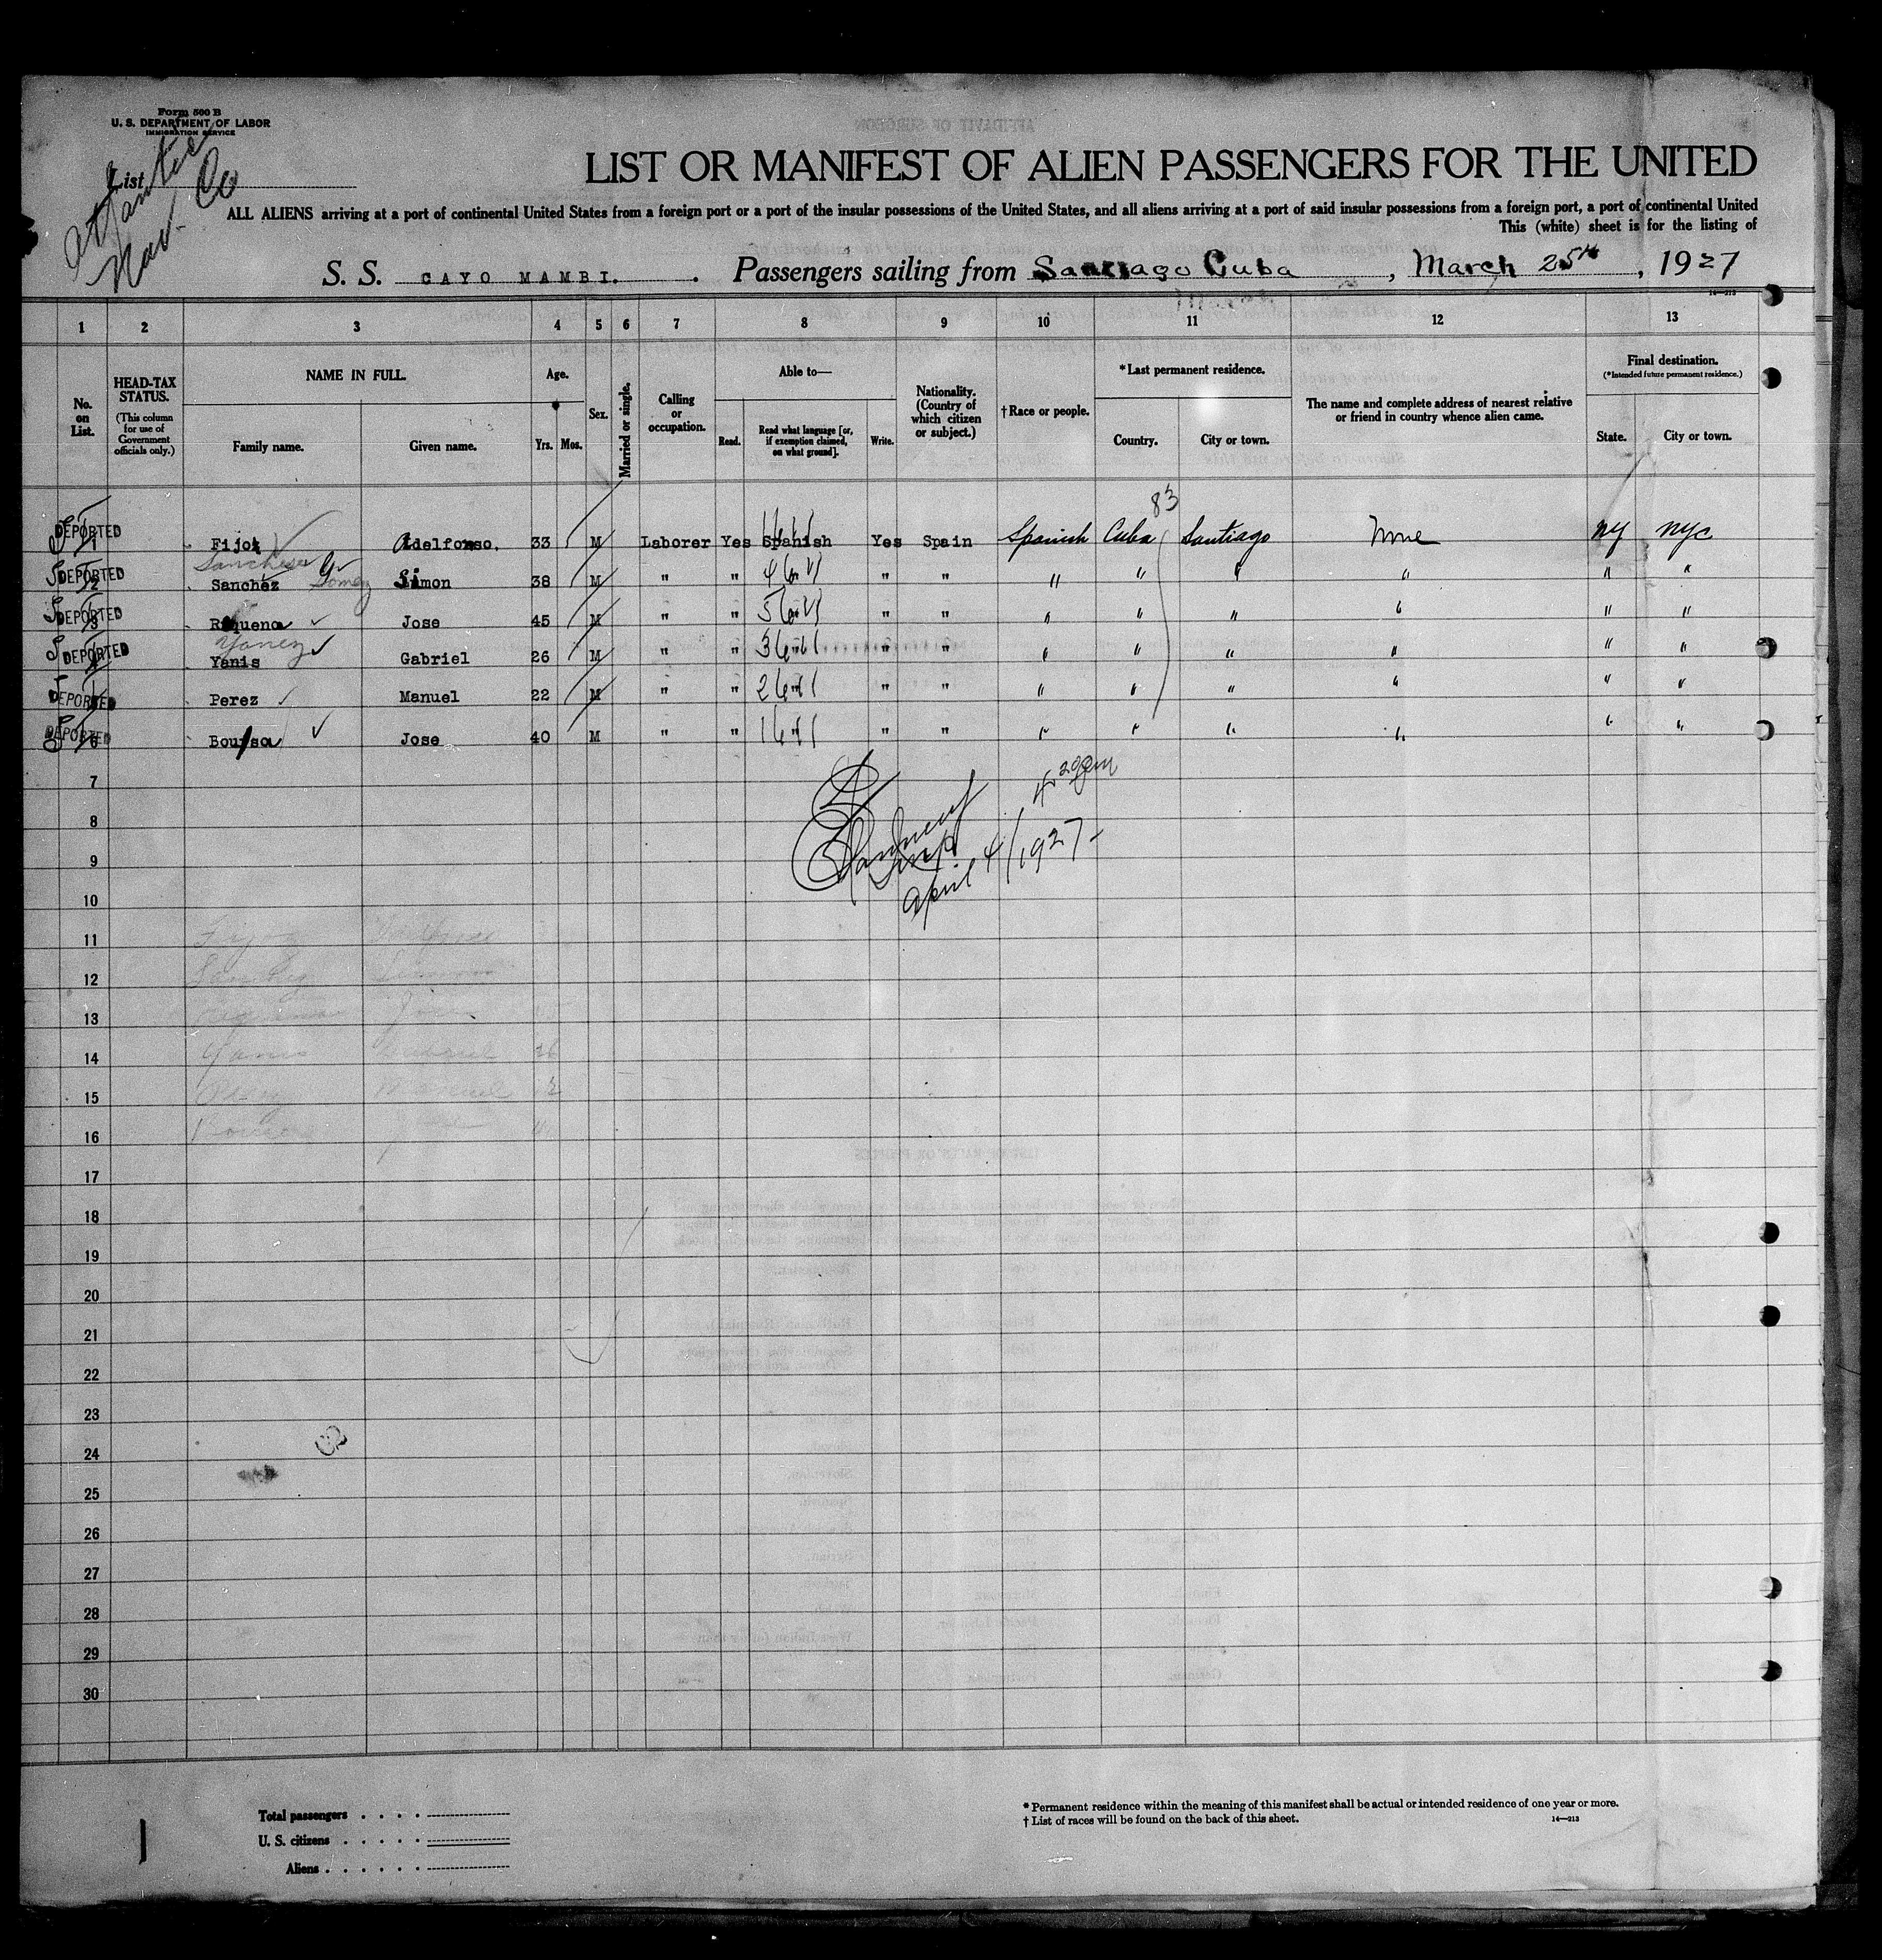 Form 500 B
U. S. DEPARTMENT OF LABOR
IMMIGRATION SERVICE
List
Atlantic
Nav. Co
LIST OR MANIFEST OF ALIEN PASSENGERS FOR THE UNITED
ALL ALIENS arriving at a port of continental United States from a foreign port or a port of the insular possessions of the United States, and all aliens arriving at a port of said insular possessions from a foreign port, a port of continental United
This (white) sheet is for the listing of
S. S. CAYO MAMBI. Passengers sailing from Santiago Cuba, March 25th, 1927
14—213
1 2 3 4 5 6 7 8 9 10 11 12 13
No. on List.
HEAD-TAX STATUS.
(This column for use of Government officials only.)
NAME IN FULL.
Family name. Given name.
Age.
Yrs. Mos.
Sex.
Married or single.
Calling or occupation.
Able to—
Read. Read what language [or, if exemption claimed, on what ground]. Write.
Nationality. (Country of which citizen or subject.)
† Race or people.
* Last permanent residence.
Country. City or town.
The name and complete address of nearest relative or friend in country whence alien came.
Final destination.
(* Intended future permanent residence.)
State. City or town.
83
DEPORTED 1 Fijo Adelfonso. 33 M Laborer Yes Spanish Yes Spain Spanish Cuba Santiago None NY NYC
Gomez
DEPORTED 2 Sanchez Simon 38 M " " " " " " " " " "
DEPORTED 3 Requena Jose 45 M " " " " " " " " " "
Yanez
DEPORTED 4 Yanis Gabriel 26 M " " " " " " " " " "
DEPORTED 5 Perez Manuel 22 M " " " " " " " " " "
DEPORTED 6 Jose 40 M " " " " " " " " " "
7
8
9
10
11
12
13
14
15
16
17
18
19
20
21
22
23
24
25
26
27
28
29
30
April 4/1927
Total passengers
U. S. citizens
Aliens
* Permanent residence within the meaning of this manifest shall be actual or intended residence of one year or more.
† List of races will be found on the back of this sheet.
14—213